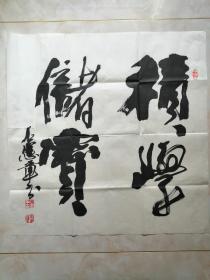 積學
儲寶